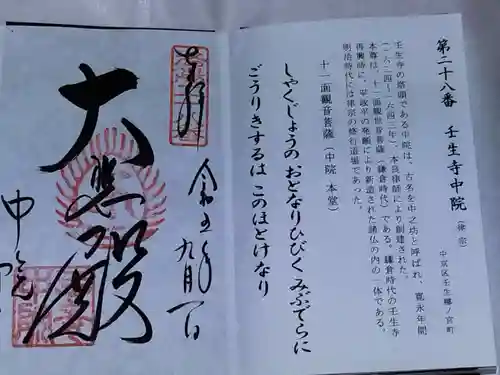 第二十八番　壬生寺中院（律宗）
中京区壬生梛ノ宮町
壬生寺の塔頭である中院は、古名を中之坊と呼ばれ、寛永年間
（一六二四～一六四三年）、本良律師により創建された。
本尊は、十一面観世音菩薩（鎌倉時代）である。鎌倉時代の壬生寺
再興時に、平政平の発願により新造された諸仏の内の一体である。
明治時代には律宗の修行道場であった。
十一面観音菩薩（中院 本堂）
しゃくじょうの おとなりひびく みぶでらに
ごうりきするは このほとけなり
令和五年九月一日
奉拝
大悲殿
中院